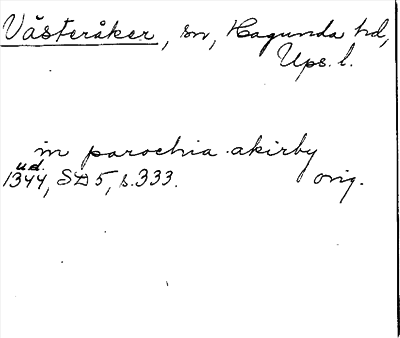 Västeråker, sn, Hagunda hd,
Ups. l.
in parochia akirby
u.d.
1344, SD 5, s. 333. orig.